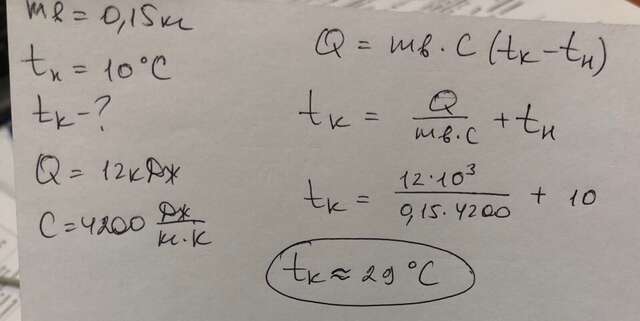 mв = 0,15кг
tн = 10°C
tк - ?
Q = 12кДж
C = 4200 Дж/кг·К
Q = mв · C (tк - tн)
tк = Q/mв·C + tн
tк = 12·10³/0,15·4200 + 10
tк ≈ 29°C